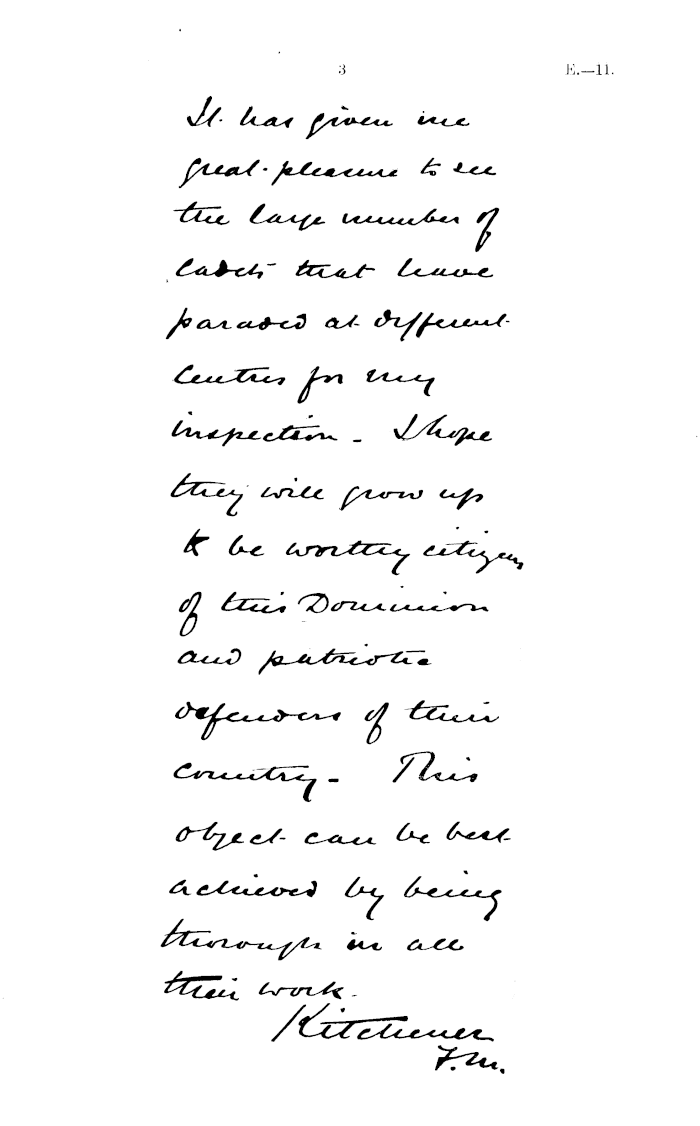 3 E.—11.
It has given me
great pleasure to see
the large number of
Cadets that have
paraded at different
Centres for my
inspection - I hope
they will grow up
to be worthy citizens
of this Dominion
and patriotic
defenders of their
country - This
object can be best
achieved by being
thorough in all
their work.
Kitchener
F.M.